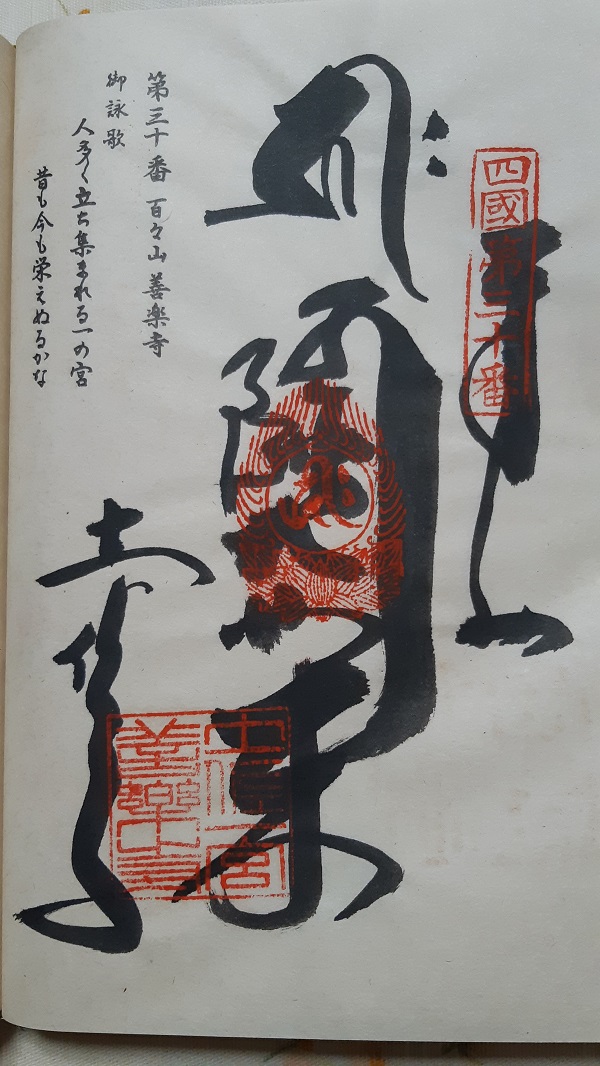 四國第三十番
阿弥陀如来
土佐一宮
善樂寺
第三十番 百々山 善楽寺
御詠歌
人多く立ち集まれる一の宮
昔も今も栄えぬるかな